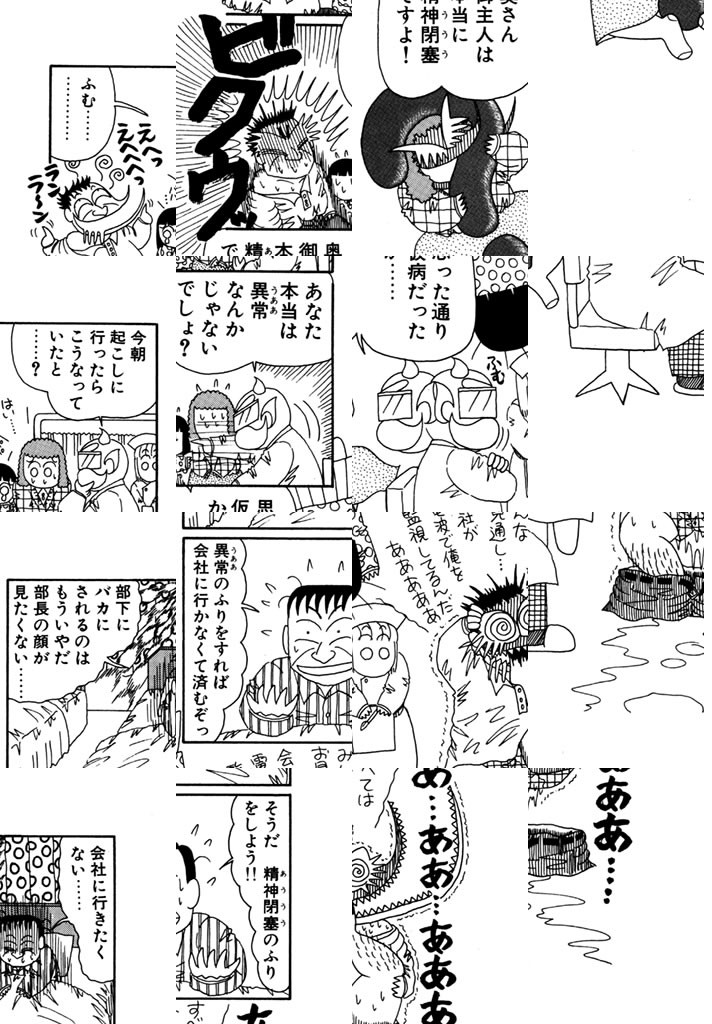 ふむ………
……
えへっ
えへへっ
ラン
ラーン
ビクウッ
奥
御
本
精
で
御主人は
本当に
精神閉塞
ですよ!
今朝
起こしに
行ったら
こうなって
いたと
………?
はい…
あなた
本当は
異常
なんか
じゃない
でしょ?
思った通り
仮病だった
か………
ふむ
部下に
バカに
されるのは
もういやだ
部長の顔が
見たくない……
異常のふりをすれば
会社に行かなくて済むぞっ
見通し…
会社が
電波で俺を
監視してるんだ
ああああああ
会社に行きたく
ない……
そうだ 精神閉塞のふり
をしよう!!
あ…ああ…あああ
ああ…